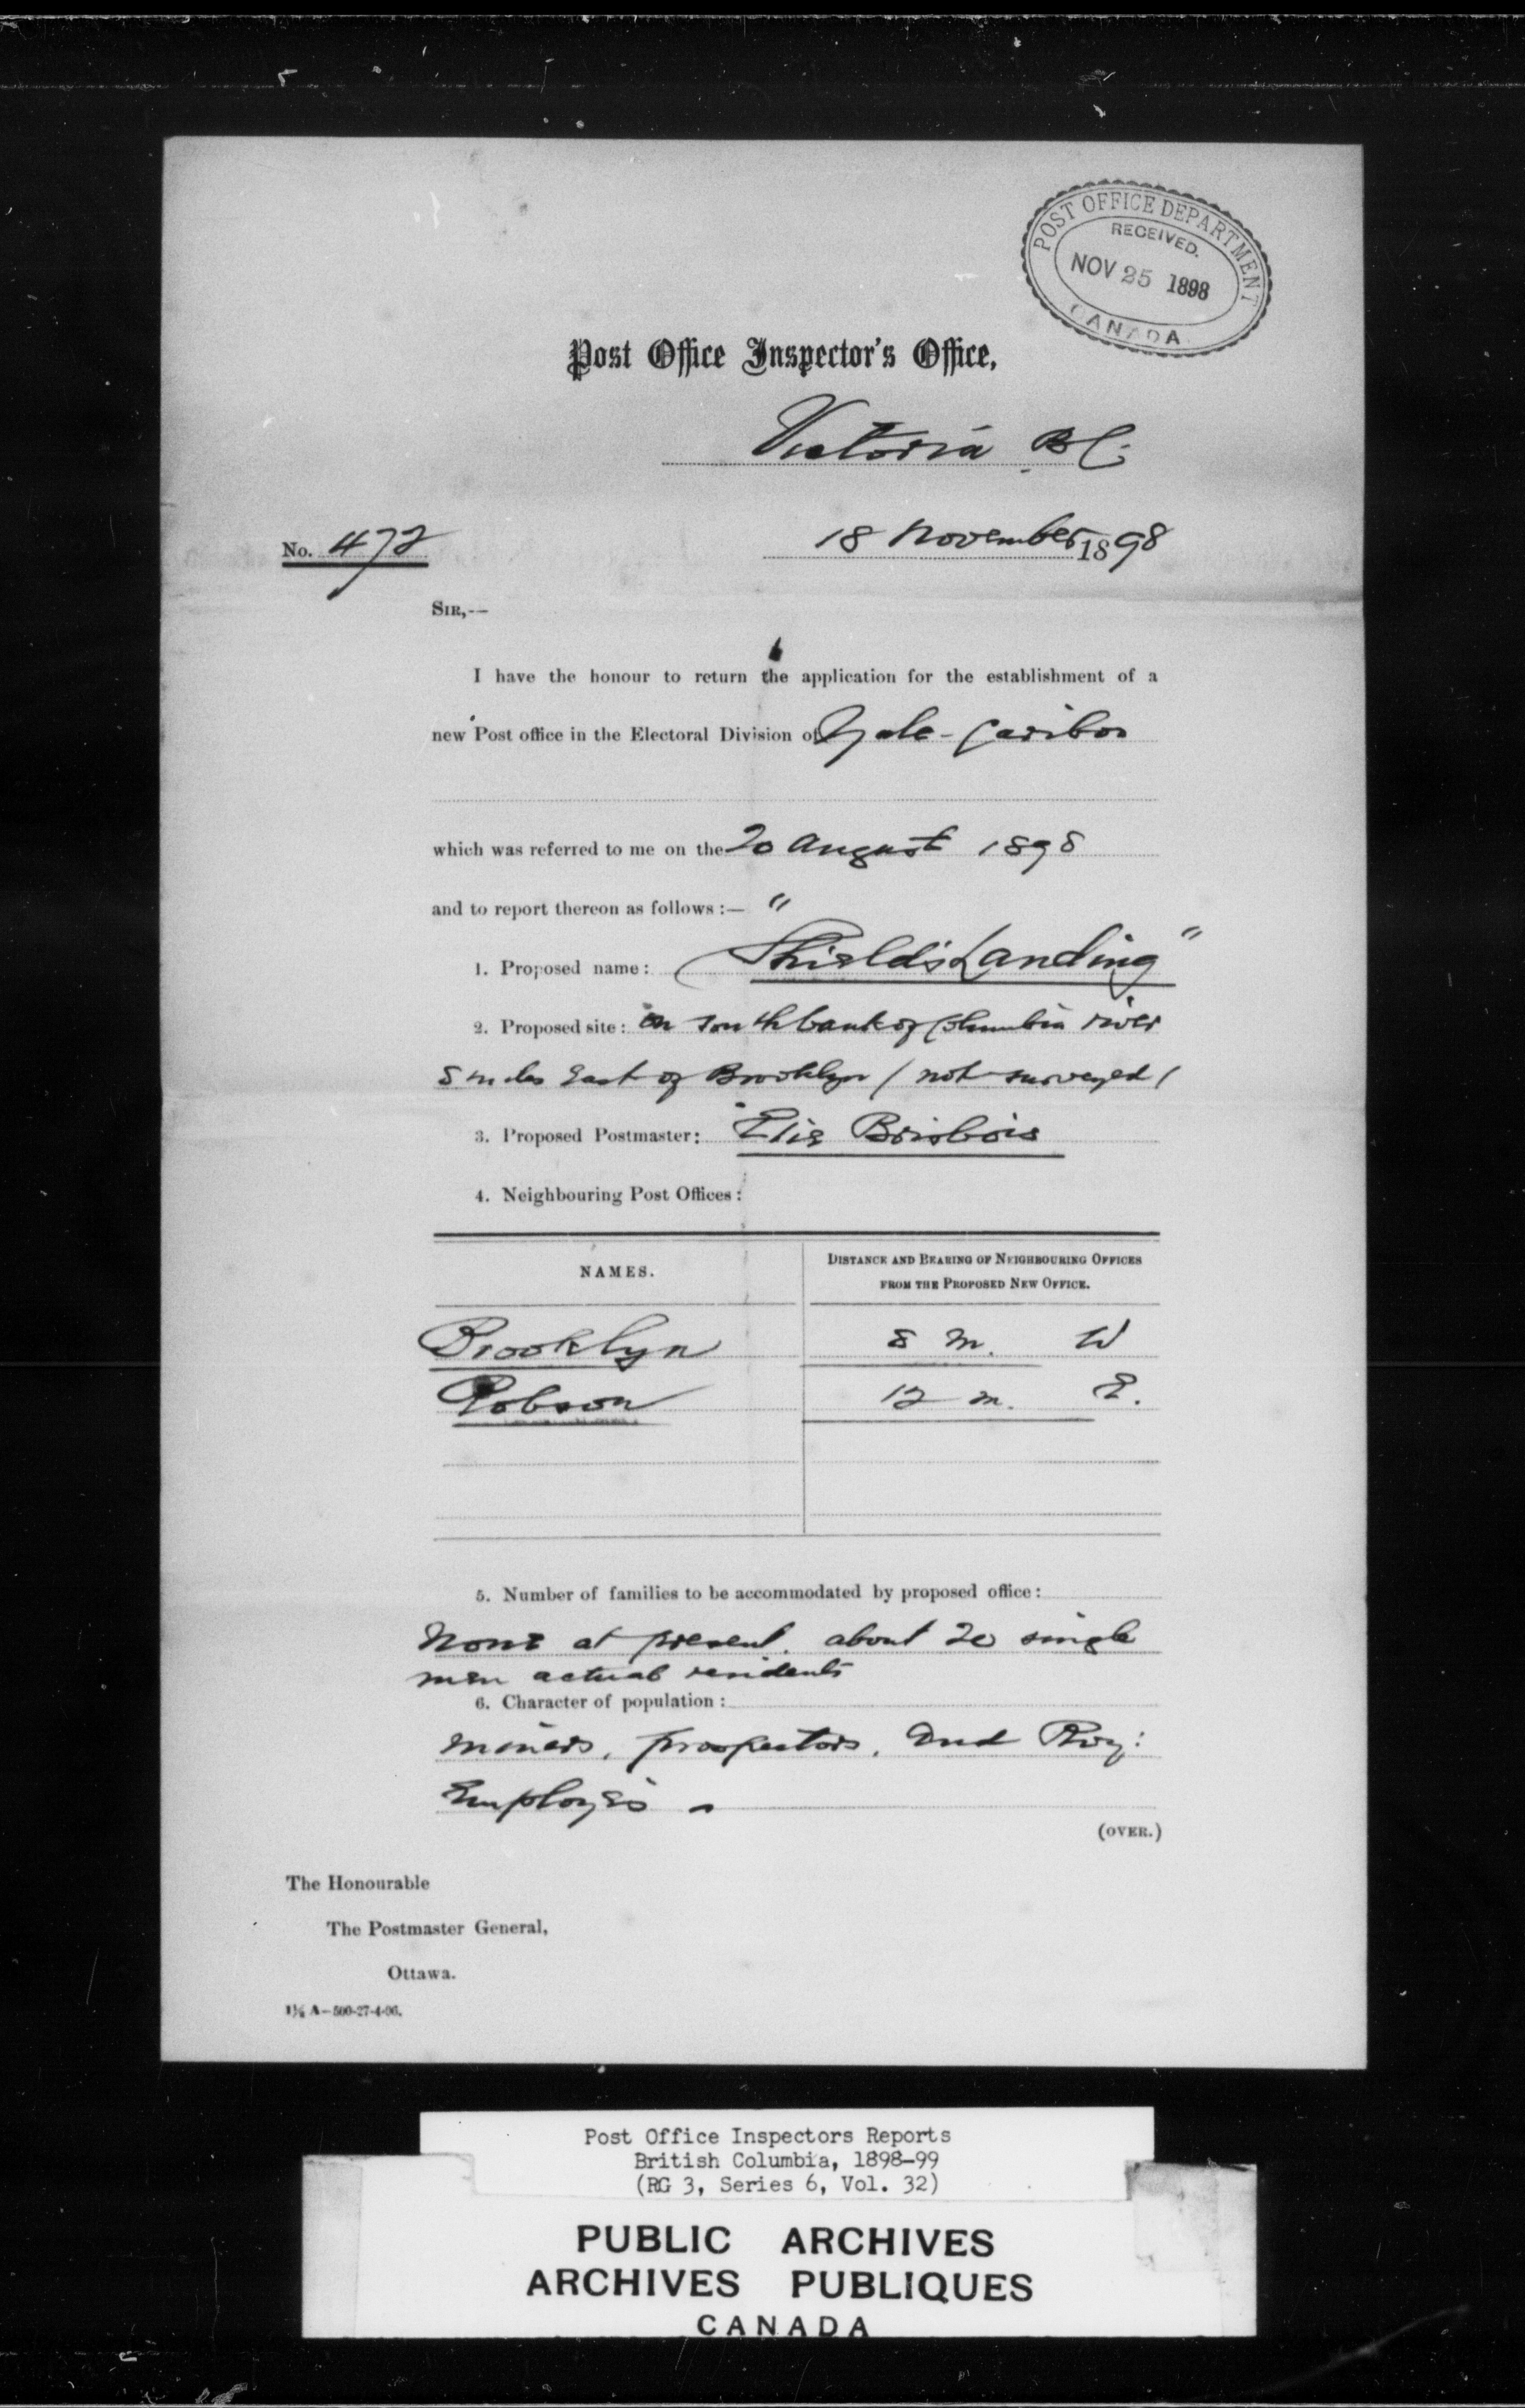 POST OFFICE DEPARTMENT
RECEIVED.
NOV 25 1898
CANADA
Post Office Inspector's Office,
Victoria BC.
No. 472
18 November 1898
SIR,--
I have the honour to return the application for the establishment of a
new Post office in the Electoral Division of Yale-Cariboo
which was referred to me on the 20 August 1898
and to report thereon as follows :— "
1. Proposed name: Shield's Landing"
2. Proposed site: on south bank of Columbia river
8 miles East of Brooklyn (not surveyed)
3. Proposed Postmaster: Elie Brisbois
4. Neighbouring Post Offices :
NAMES.
DISTANCE AND BEARING OF NEIGHBOURING OFFICES
FROM THE PROPOSED NEW OFFICE.
Brooklyn 8 m. W
Robson 12 m. E.
5. Number of families to be accommodated by proposed office :
None at present. about 20 single
men actual residents
6. Character of population :
Miners, prospectors, and Rwy:
Employés
(OVER.)
The Honourable
The Postmaster General,
Ottawa.
1½ A–500-27-4-96.
Post Office Inspectors Reports
British Columbia, 1898-99
(RG 3, Series 6, Vol. 32)
PUBLIC ARCHIVES
ARCHIVES PUBLIQUES
CANADA